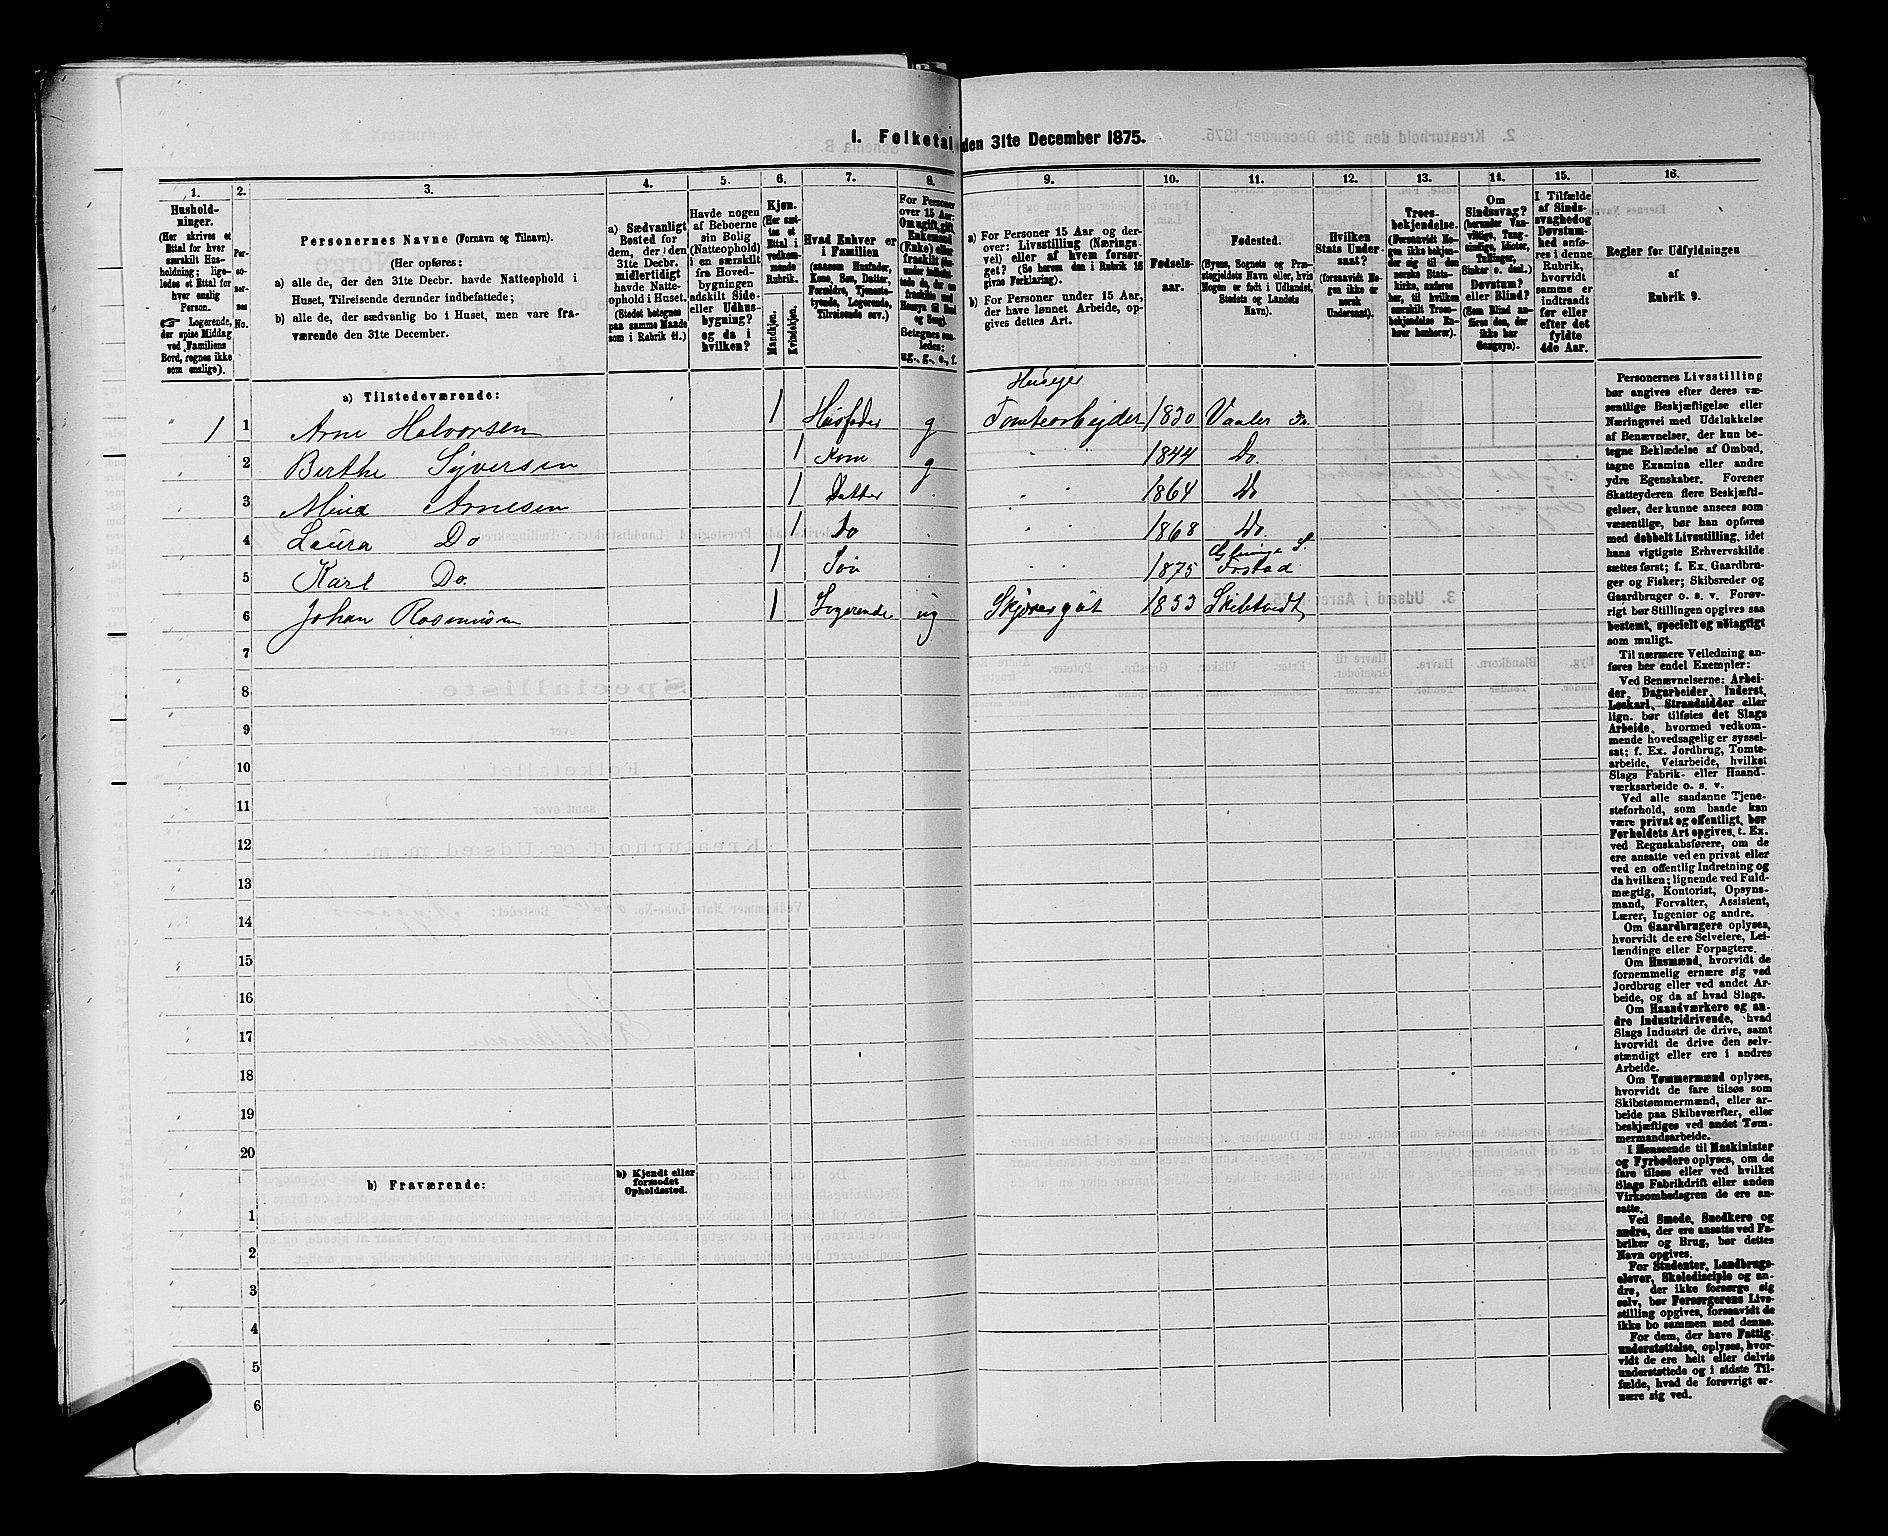 I. Folketal den 31te December 1875.
1. 2. 3. 4. 5. 6. 7. 8. 9. 10. 11. 12. 13. 14. 15. 16.
Husholdninger.
(Her skrives et Ettal for hver særskilt Husholdning; ligeledes et Ettal for hver enslig Person.
☞ Logerende, der spise Middag ved Familiens Bord, regnes ikke som enslige).
Personernes No.
Personernes Navne (Fornavn og Tilnavn).
(Her opføres:
a) alle de, der den 31te Decbr. havde Natteophold i Huset, Tilreisende derunder indbefattede;
b) alle de, der sædvanlig bo i Huset, men vare fraværende den 31te December.
a) Sædvanligt Bosted for dem, der den 31te Decbr. midlertidigt havde Natteophold i Huset. (Stedet betegnes paa samme Maade som i Rubrik 11.)
Havde nogen af Beboerne sin Bolig (Natteophold) i en særskilt fra Hovedbygningen adskilt Side- eller Udhusbygning? og da i hvilken?
Kjøn.
(Her sættes et Ettal i vedkommende Rubrik.
Mandkjøn.
Kvindekjøn.
Hvad Enhver er i Familien
(saasom Husfader, Kone, Søn, Datter, Forældre, Tjenestetyende, Logerende, Tilreisende osv.)
For Personer over 15 Aar: Om ugift, gift,
Betegnes saaledes:
ug., g., e., f.
a) For Personer 15 Aar og derover: Livsstilling (Næringsvei) eller af hvem forsørget? (Se herom den i Rubrik 16 givne Forklaring).
b) For Personer under 15 Aar, der have lønnet Arbeide, opgives dettes Art.
Fødselsaar.
Fødested.
(Byens, Sognets og Præstegjeldets Navn eller, hvis Nogen er født i Udlandet, Stedets og Landets Navn).
Hvilken Stats Undersaat?
(forsaavidt Nogen ikke er norsk Undersaat).
Troesbekjendelse.
(Forsaavidt Nogen ikke bekjender sig til den norske Statskirke, anføres her, til hvilken særskilt Troesbekjendelse Enhver henhører).
Om Sindssvag?
Døvstum? eller Blind?
(Som Blind anføres den, der ikke har Gangsyn).
I Tilfælde af Sindssvaghed og Døvstumhed anføres i denne Rubrik, hvorvidt samme er indtraadt før eller efter det fyldte 4de Aar.
Regler før Udfyldningen
af
Rubrik 9.
a) Tilstedeværende:
Husejer
1 1 Arne Halvorsen 1 Husfader g Tomtearbejder 1830 Vaaler
2 Berthe Syversen 1 Kone g 1844 Do.
3 Arnesen 1 Datter 1864 Do
4 Laura Do 1 Do 1868 Do.
5 Karl Do. 1 Søn 1875
6 Johan Rasmusen 1 Logerende ug Skibtvedt
7
8
9
10
11
12
13
14
15
16
17
18
19
20
b) Fraværende:
b) Kjendt eller formodet Opholdssted.
1
2
3
4
5
6
Personernes Livsstilling
bør angives efter deres væ-
sentlige Beskjæftigelse eller
Næringsvei med Udelukkelse
af Benævnelser, der kun be-
tegne Beklædelse af Ombud,
tagne Examina eller andre
ydre Egenskaber. Forener
Skatteyderen flere Beskjæftig-
elser, der kunne ansees som
væsentlige, bør han opføres
med dobbelt Livsstilling, idet
hans vigtigste Erhvervskilde
sættes først; f. Ex. Gaardbru-
ger og Fisker; Skibsreder og
Gaardbruger o. s. v. Forøv-
rigt bør Stillingen opgives saa
bestemt, specielt og nøiagtigt
som muligt.
Til nærmere Veiledning an-
føres her endel Exempler:
Ved Benævnelserne: Arbei-
der, Dagarbeider, Inderst,
Løskarl, Strandsidder eller
lign. bør tilføies det Slags
Arbeide, hvormed vedkom-
mende hovedsagelig er syssel-
sat; f. Ex. Jordbrug, Tomte-
arbeide, Veiarbeide, hvilket
Slags Fabrik- eller Haand-
værksarbeide o. s. v.
Ved alle saadanne Tjene-
steforhold, som baade kan
være privat og offentligt, bør
Forholdets Art opgives, t. Ex.
ved Regnskabsførere, om de
ere ansatte ved en privat eller
ved en offentlig Indretning og
da hvilken; lignende ved Fuld-
mægtig, Kontorist, Opsyns-
mand, Forvalter, Assistent,
Lærer, Ingeniør og andre.
Om Gaardbrugere oplyses,
hvorvidt de ere Selveiere, Lei-
lændinge eller Forpagtere.
Om Husmænd, hvorvidt de
fornemmelig ernære sig ved
Jordbrug eller ved andet Ar-
beide, og da af hvad Slags.
Om Haandværkere og an-
dre Industridrivende, hvad
Slags Industri de drive, samt
hvorvidt de drive den selv-
stændigt eller ere i andres
Arbeide.
Om Tømmermænd oplyses,
hvorvidt de fare tilsøs som
Skibstømmermænd, eller ar-
beide paa Skibsværfter, eller
beskjæftiges ved andet Tøm-
mermandsarbeide.
I Henseende til Maskinister
og Fyrbødere oplyses, om de
fare tilsøs eller ved hvilket
Slags Fabrikdrift eller anden
Virksomhedsgren de ere an-
satte.
Ved Smede, Snedkere og
andre, der ere ansatte ved Fa-
briker og Brug, bør dettes
Navn opgives.
For Studenter, Landbrugs-
elever, Skoledisciple og an-
dre, der ikke forsørge sig
selv, bør Forsørgerens Livs-
stilling opgives, forsaavidt de
ikke bo sammen med denne.
For dem, der have Fattig-
understøttelse, oplyses, hvor-
vidt de ere helt eller delvis
understøttede og i sidste Til-
fælde, hvad de forøvrigt er-
nære sig ved.